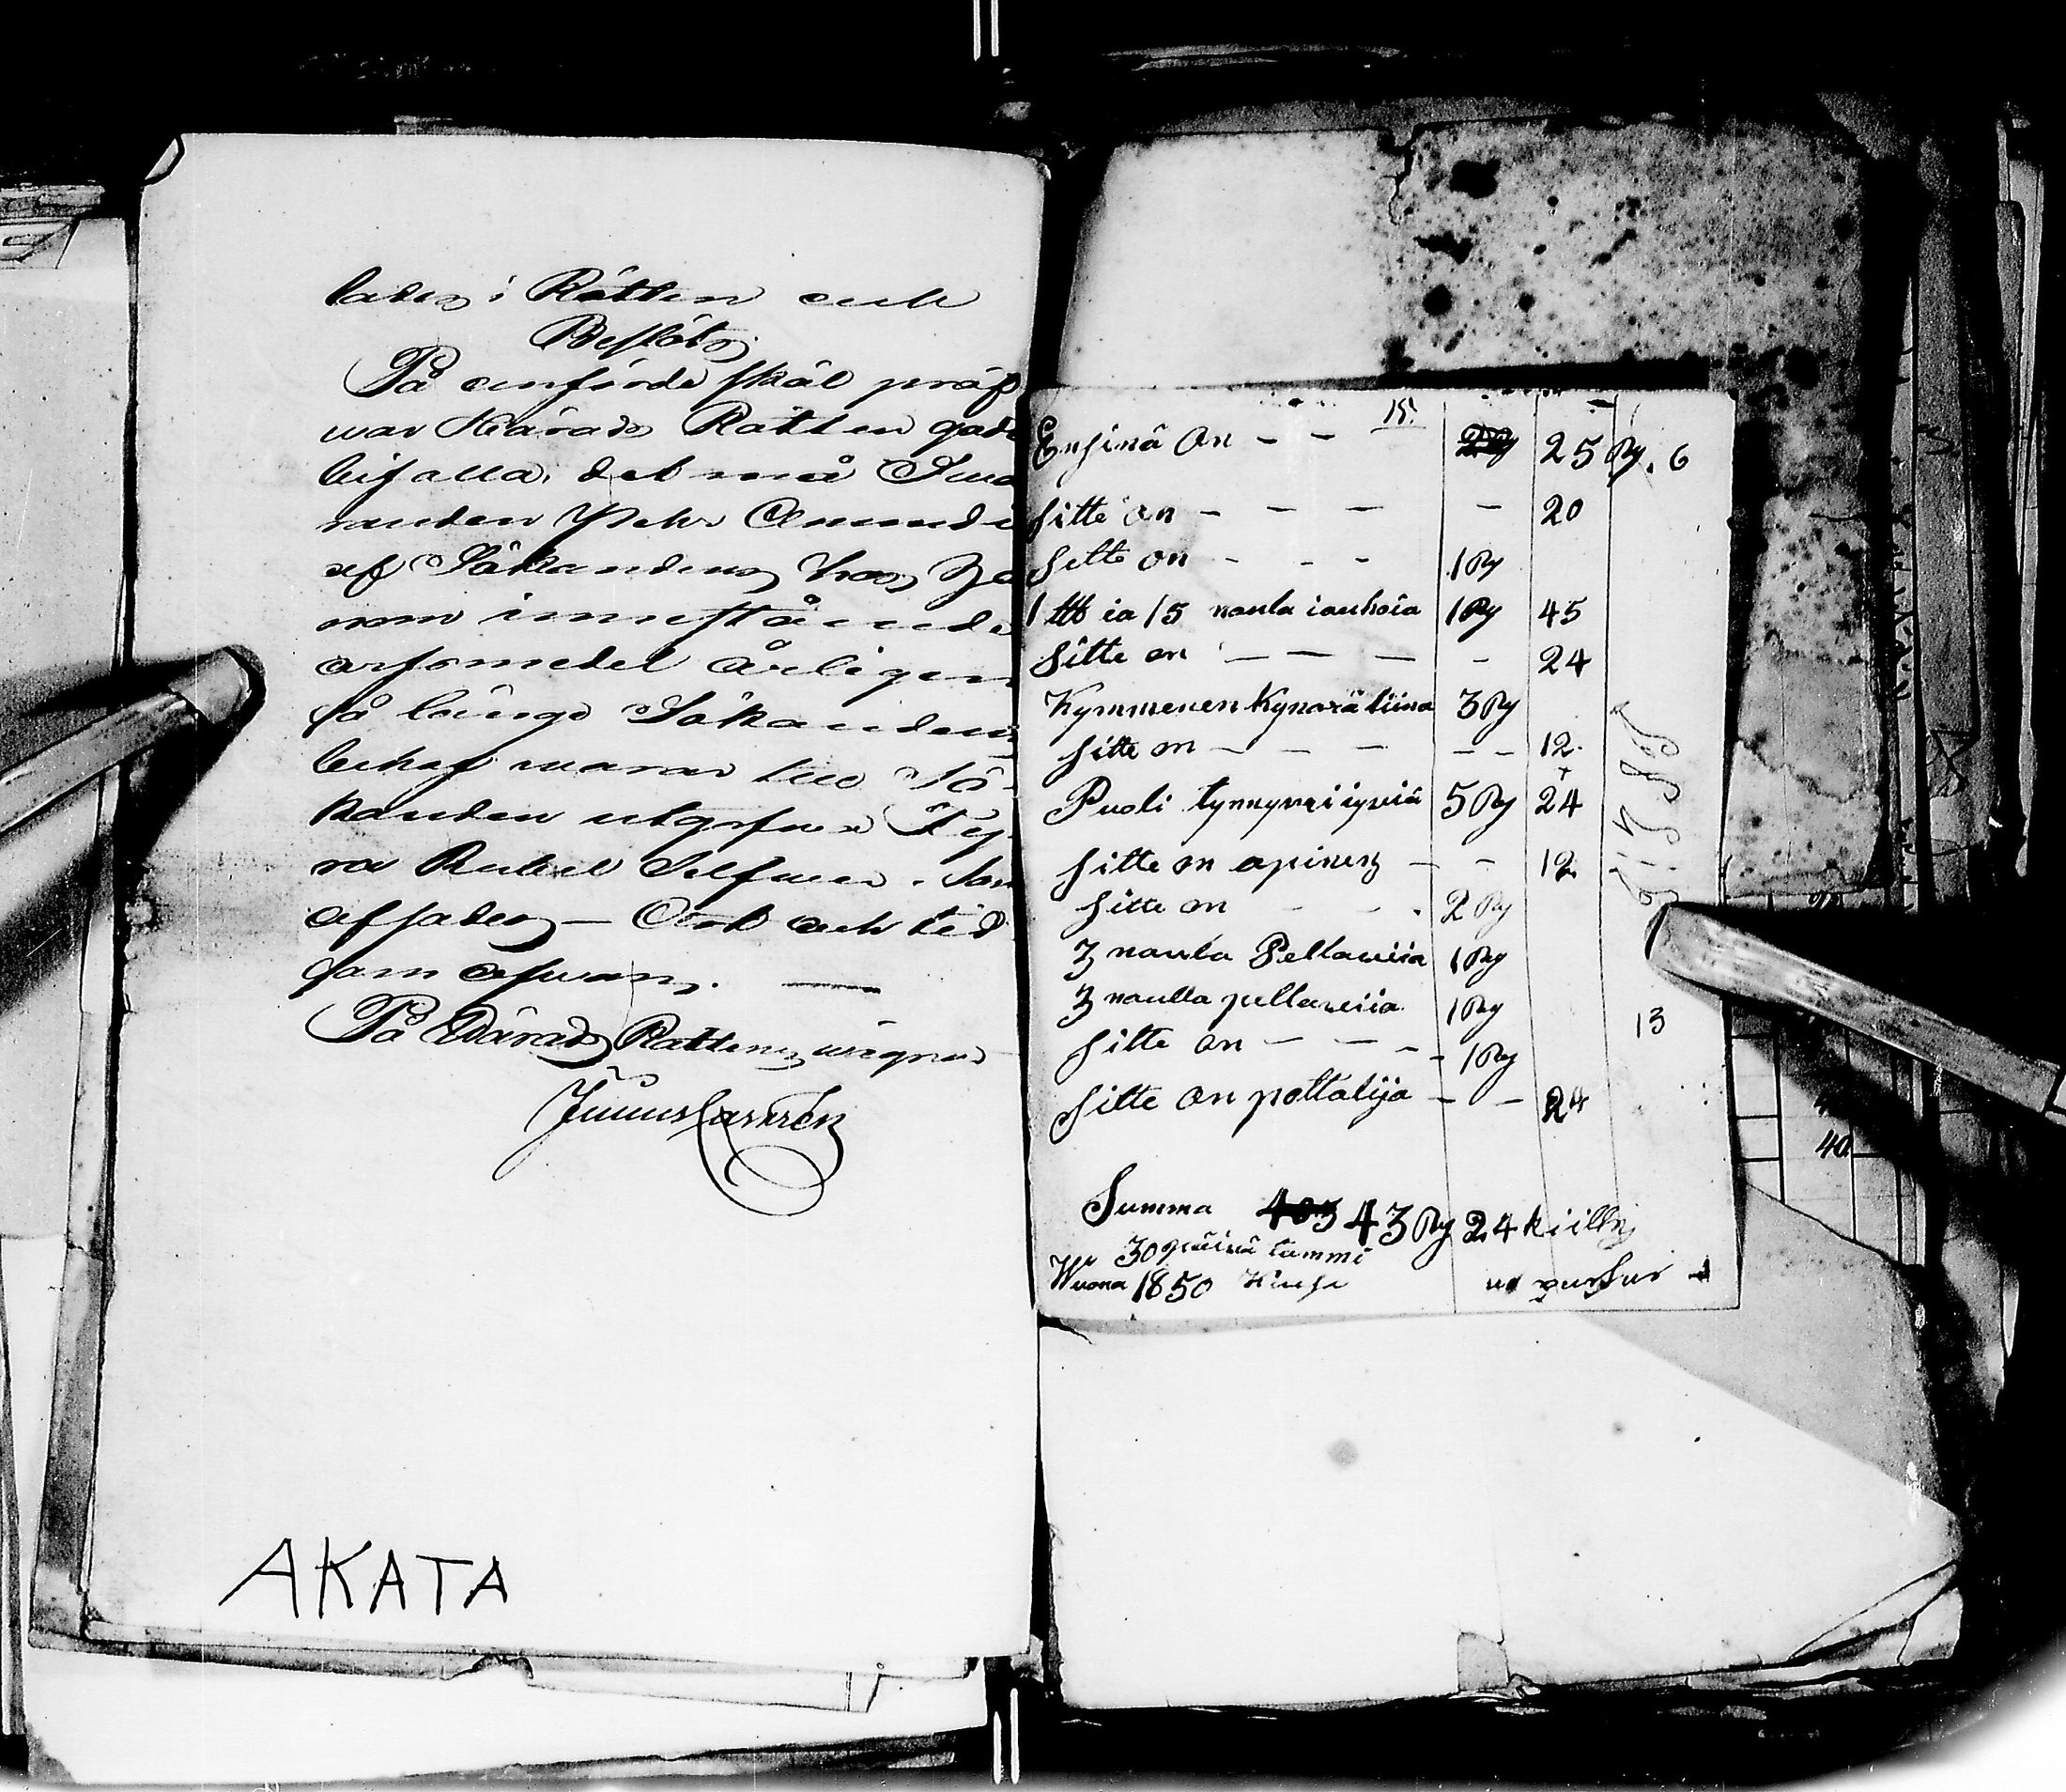 lades i Rätten och
Beslöts;
På anförde skäl pröf
var Härads Rätten godt
bifalla, det må Swa
randen Pehr Amundi
af Sökandens hos ho
nom innestående
arfsmedel årligen
så länge Sökandens
behof warar till Sö-
kanden utgifwa Fy
ra Rubel Silfwer. Som
afsades — Ort och tid
som ofwan. —
På Härads Rättens wägnar
AKATA
Ensinä on - - 25 Ry. 6
sitte on - - - - 20
sitte on - - - 1 Ry
1 ia 15 naula iauhoia 1 Ry 45
sitte on - - - - 24
Kymmenen kynärä liina 3 Ry
sitte on - - - - - 12
Puoli tynnyrri iyviä 5 Ry 24
sitte on apinery - - 12
sitte on - - 2 Ry
3 naula Pellawiia 1 Ry
3 naulla pellaweiia 1 Ry
sitte on - - - - 1 Ry
sitte on pottalija - - 24
13
Summa 43 Ry 24 k
30 päivä tammi
Wuona 1850
40